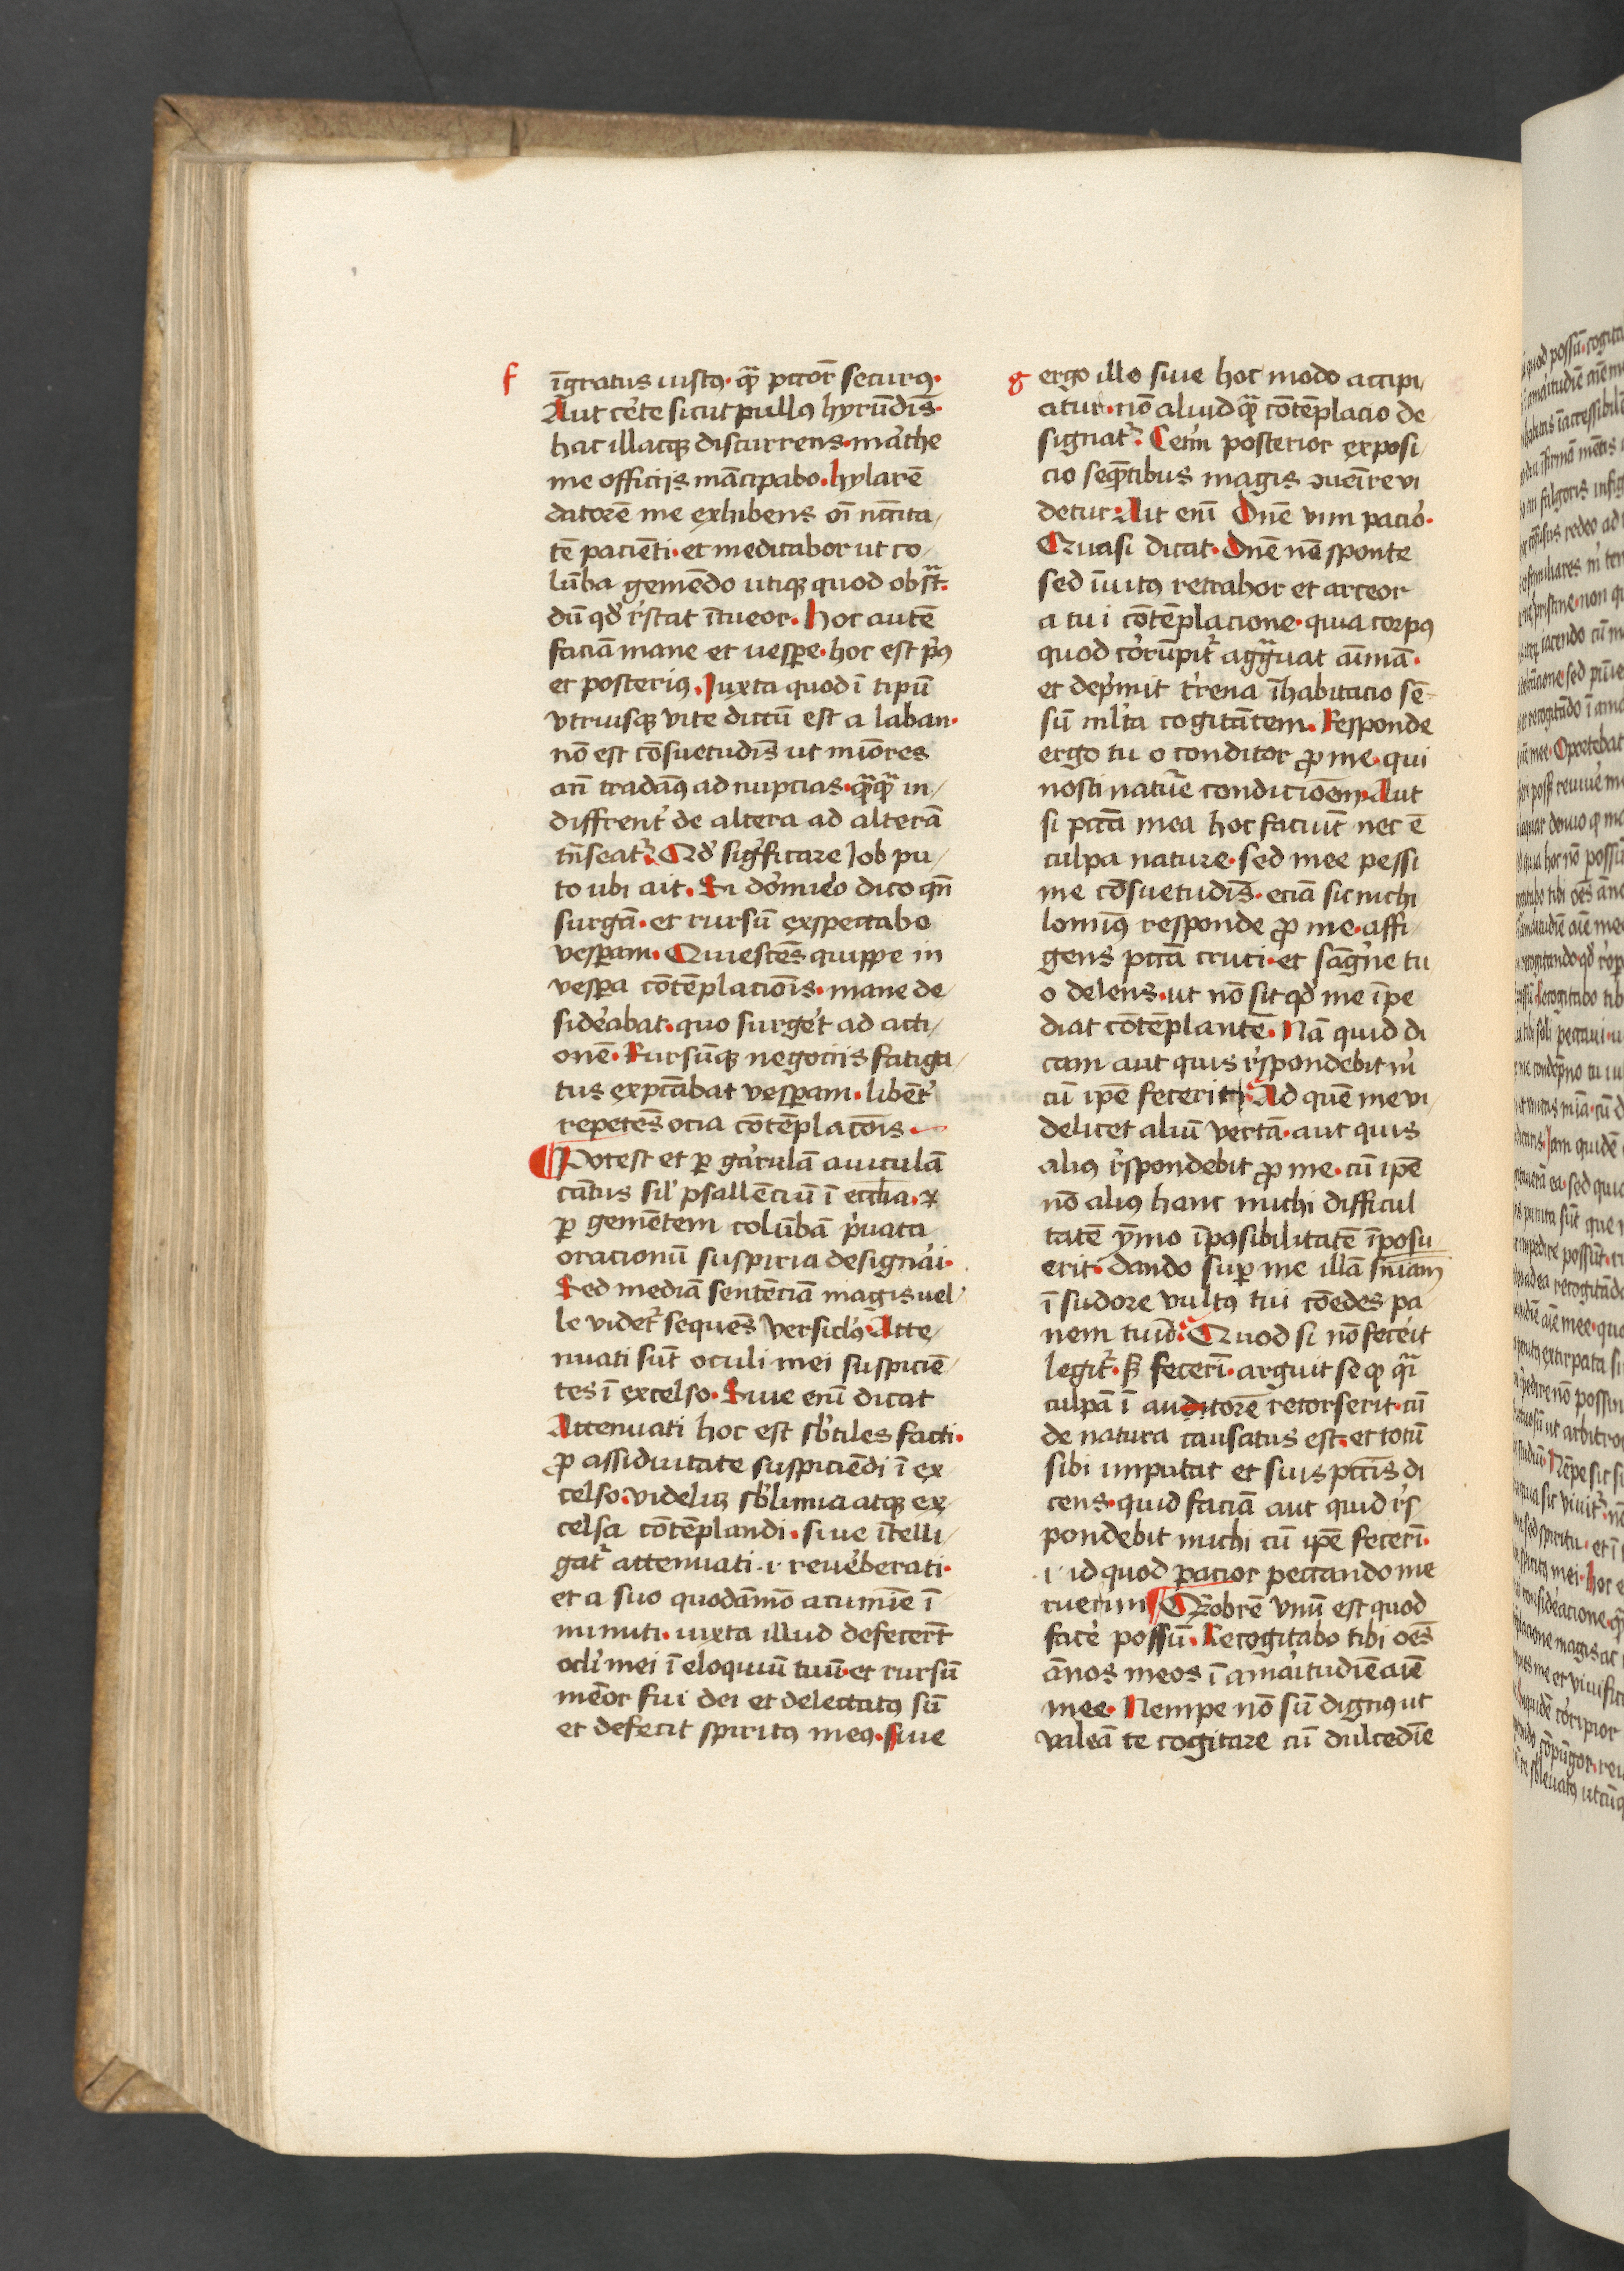 f
īgratus iustꝰ· qͣ̄ pcc̄or̄ securꝰ·
Aut cer̄te sicut pullꝰ hyrūdīs·
hac illacqꝫ discurrens· mar̄the
me officijs mācipabo· hylarē
datorē me exhibens oī nc̄c̄ita⸗
tē paciēti· et meditabor ut co⸗
lūba gemēdo utiqꝫ quod obstͣ̄·
dū qd̓ rͤstat ītueor· hoc autē
faciā mane et uesꝑe· hoc est pͥꝰ
et posteriꝰ· Iuxta quod ī tipū
vtriusqꝫ vite dictū est a laban·
nō est cōsuetudīs ut miōres
an̄ tradāꝰ ad nupcias· qͣ̄qͣ̄ in⸗
diffrent̓ de altera ad alterā
tn̄seatᷣ· Qd̓ sigͥficare Iob pu⸗
to ubi ait· Si dormier̓o dico qn̄
surgā· et rursū exspectabo
vesꝑam· Quiescēs quippe in
vesꝑa cōtēplaciōis· mane de⸗
sider̓abat· quo surger̓et ad acti⸗
onē· Rursūqꝫ negociis fatiga⸗
tus exptc̄abat vesꝑam· libēt̓
repetēs ocia cōtēplac̄ois·
¶ Potest et ꝑ gar̓rulā auiculā
cātus sil̓ psallēciū ī ecc̄lia· ⁊
ꝑ gemētem colūbā pͥuata
oracionū suspiria designari·
Sed mediā sentēciā magis uel⸗
le videtᷣ sequēs versiclꝰ· Atte⸗
nuati sūt oculi mei suspiciē⸗
tes ī excelso· Siue enī dicat
Attenuati hoc est sb̓tiles facti·
ꝓ assiduitate suspiciēdi ī ex⸗
celso· videliꝫ sb̓limia atqꝫ ex⸗
celsa cōtēplandi· siue ītelli⸗
gatᷣ attenuati ·i· reuer̓berati·
et a suo quodāmō acumīe ī⸗
minuti· iuxta illud defecer̄t
ocl̓i mei ī eloquiū tuū· et rursū
mēor fui dei et delectatꝰ sū
et defecit spiritꝰ meꝰ· siue
g
ergo illo siue hoc modo accipi⸗
citur· nō aliud qͣ̄ cōtēplacio de⸗
signatᷣ· Cetͤrm̄ posterior exposi⸗
cio seqͣ̄tibus magis ꝯueīre vi
detur· Ait enī Dn̄e vim pacior̓·
Quasi dicat· Dn̄e nō sponte
sed īuitꝰ retrahor et arceor
a tui cōtēplacione· quia corpꝰ
quod cor̓rūpitᷣ aggͣuat aīmā·
et depͥmit tͤrena īhabitacio sē⸗
sū ml̓ta cogitātem· Responde
ergo tu o conditor ꝓ me· qui
nosti natur̓e condicioēm· Aut
si pcc̄a mea hoc faciūt nec ē
culpa nature· sed mee pessi
me cōsuetudīs· eciā sic nichi
lomīꝰ responde ꝓ me· affi⸗
gens pcc̄a cruci· et sāgͥne tu
o delens· ut nō sit qd̓ me īpe
diat cōtēplantē· Nā quid di
cam aut quis rͤspondebit m̓
cū ip̄e fecerit· Ad quē me vi
delicet aliū vertā· aut quis
aliꝰ rͤspondebit ꝓ me· cū ip̄e
nō aliꝰ hanc michi difficul
tatē ȳmo īpꝰsibilitatē īposu⸗
erit· dando suꝑ me illā sn̄iam
ī sudore vultꝰ tui cōedes pa
nem tuū· Quod si nō fecer̓it
legitᷣ· sꝫ fecerī· arguit se ꝙ qͣi
culpā ī auditorē retorserit· cū
de natura causatus est· et totū
sibi imputat et suis pcc̄is di
cens· quid faciā aut quid rͤs⸗
pondebit michi cū ip̄e fecerī·
·i· id quod pacior peccando me
ruerim ¶ Qͣ̄obrē vnū est quod
facer̓e possū· Recogitabo tibi oēs
ānos meos ī amaritudīe aīē
mee· Nempe nō sū dignꝰ ut
valeā te cogitare cū dulcedīe